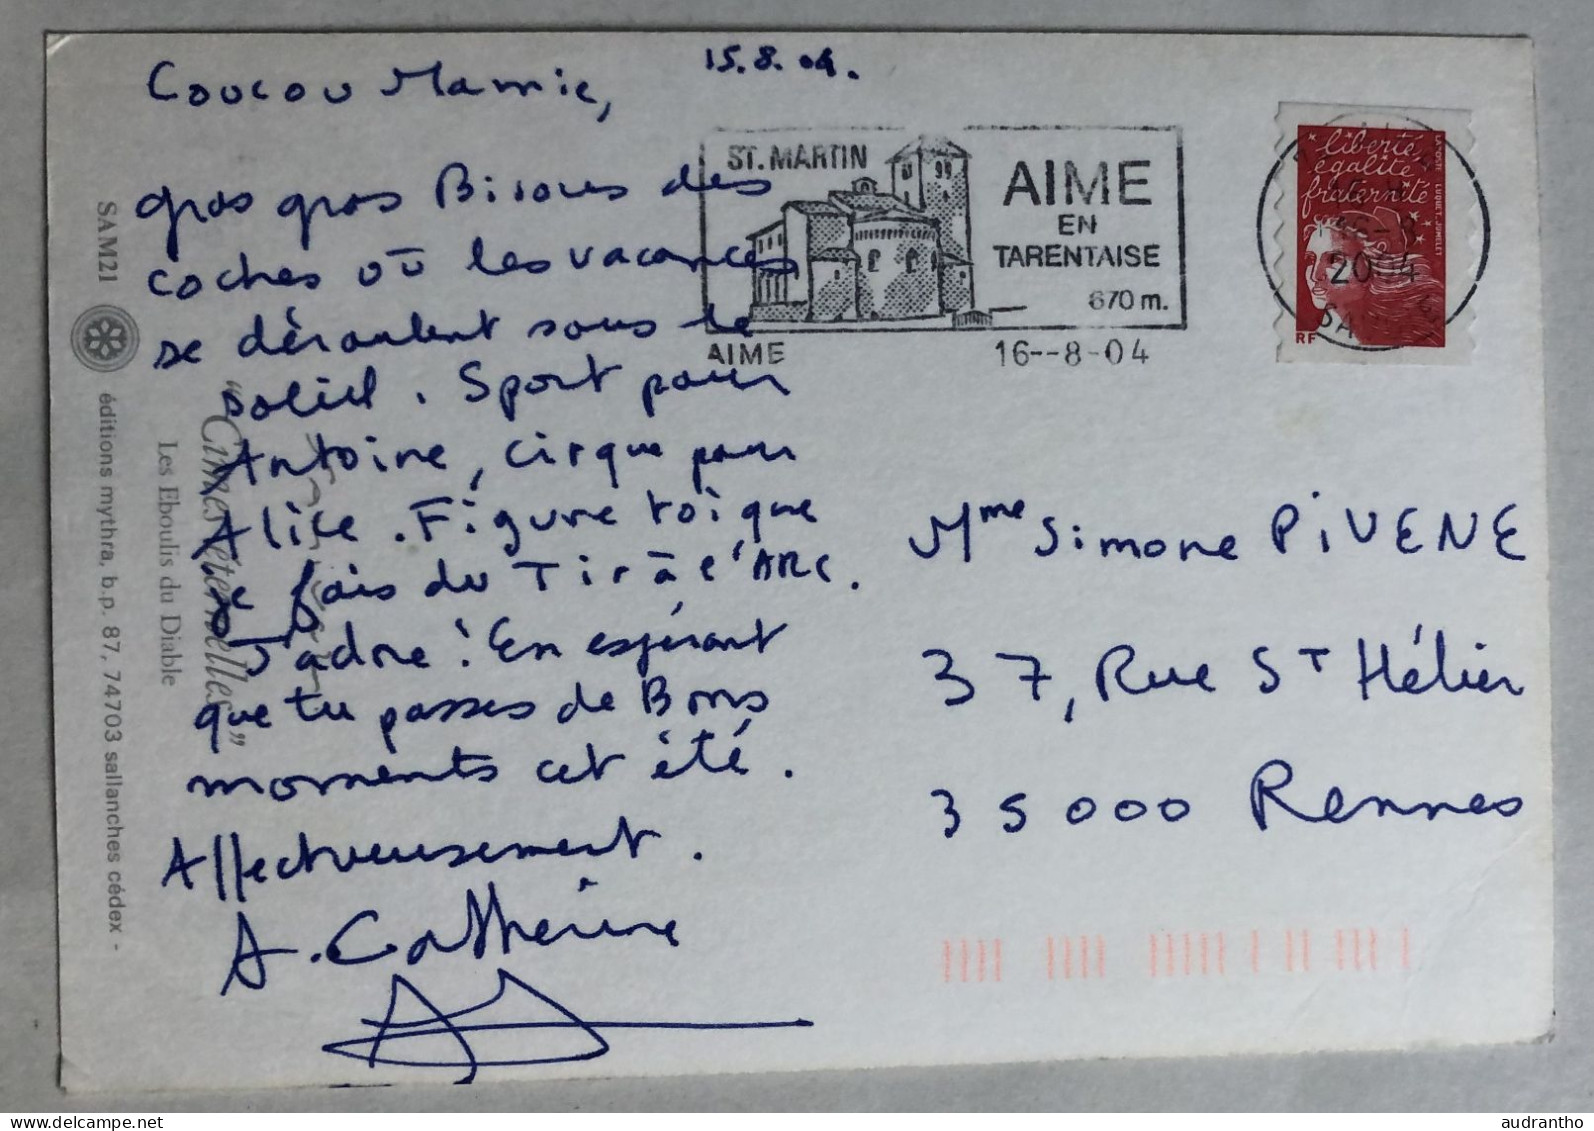 15.8.04.
Coucou Mamie,
gros gros Bisous des
coches où les vacances
se déroulent sous le
soleil. Sport pour
Antoine, cirque pour
Alice. Figure toi que
je fais du Tir à l'ARC.
J'adore ! En espérant
que tu passes de Bons
moments cet été.
Affectueusement.
A. Catherine
ST. MARTIN
AIME
EN
TARENTAISE
670 m.
AIME
16--8-04
liberté
égalité
fraternité
LA POSTE LUQUET-JUMELET
RF
2004
Mme Simone PIVENE
37, Rue ST Hélier
35000 Rennes
"Cimes éternelles"
Les Eboulis du Diable
SAM21 éditions mythra, b.p. 87, 74703 sallanches cédex -
audrantho